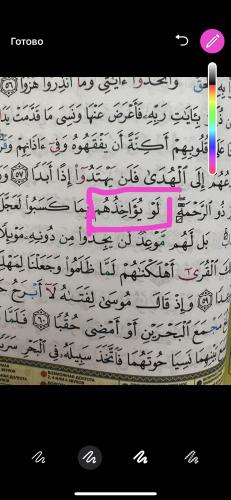 Готово
واتخذوا ءايتي وما أنذروا هزوا ٥٦
بـٔايت ربه فأعرض عنها ونسي ما قدمت يداه
قلوبهم أكنة أن يفقهوه وفي ءاذانهم وقرا
إلى الهدى فلن يهتدوا إذا أبدا ٥٧
ذو الرحمة لو يؤاخذهم بما كسبوا لعجل
بل لهم موعد لن يجدوا من دونه موئلا
القرى أهلكنهم لما ظلموا وجعلنا لمهلكهم
٥٩ وإذ قال موسى لفتىه لا أبرح
مجمع البحرين أو أمضي حقبا ٦٠ فلما
بينهما نسيا حوتهما فاتخذ سبيله في البحر سربا